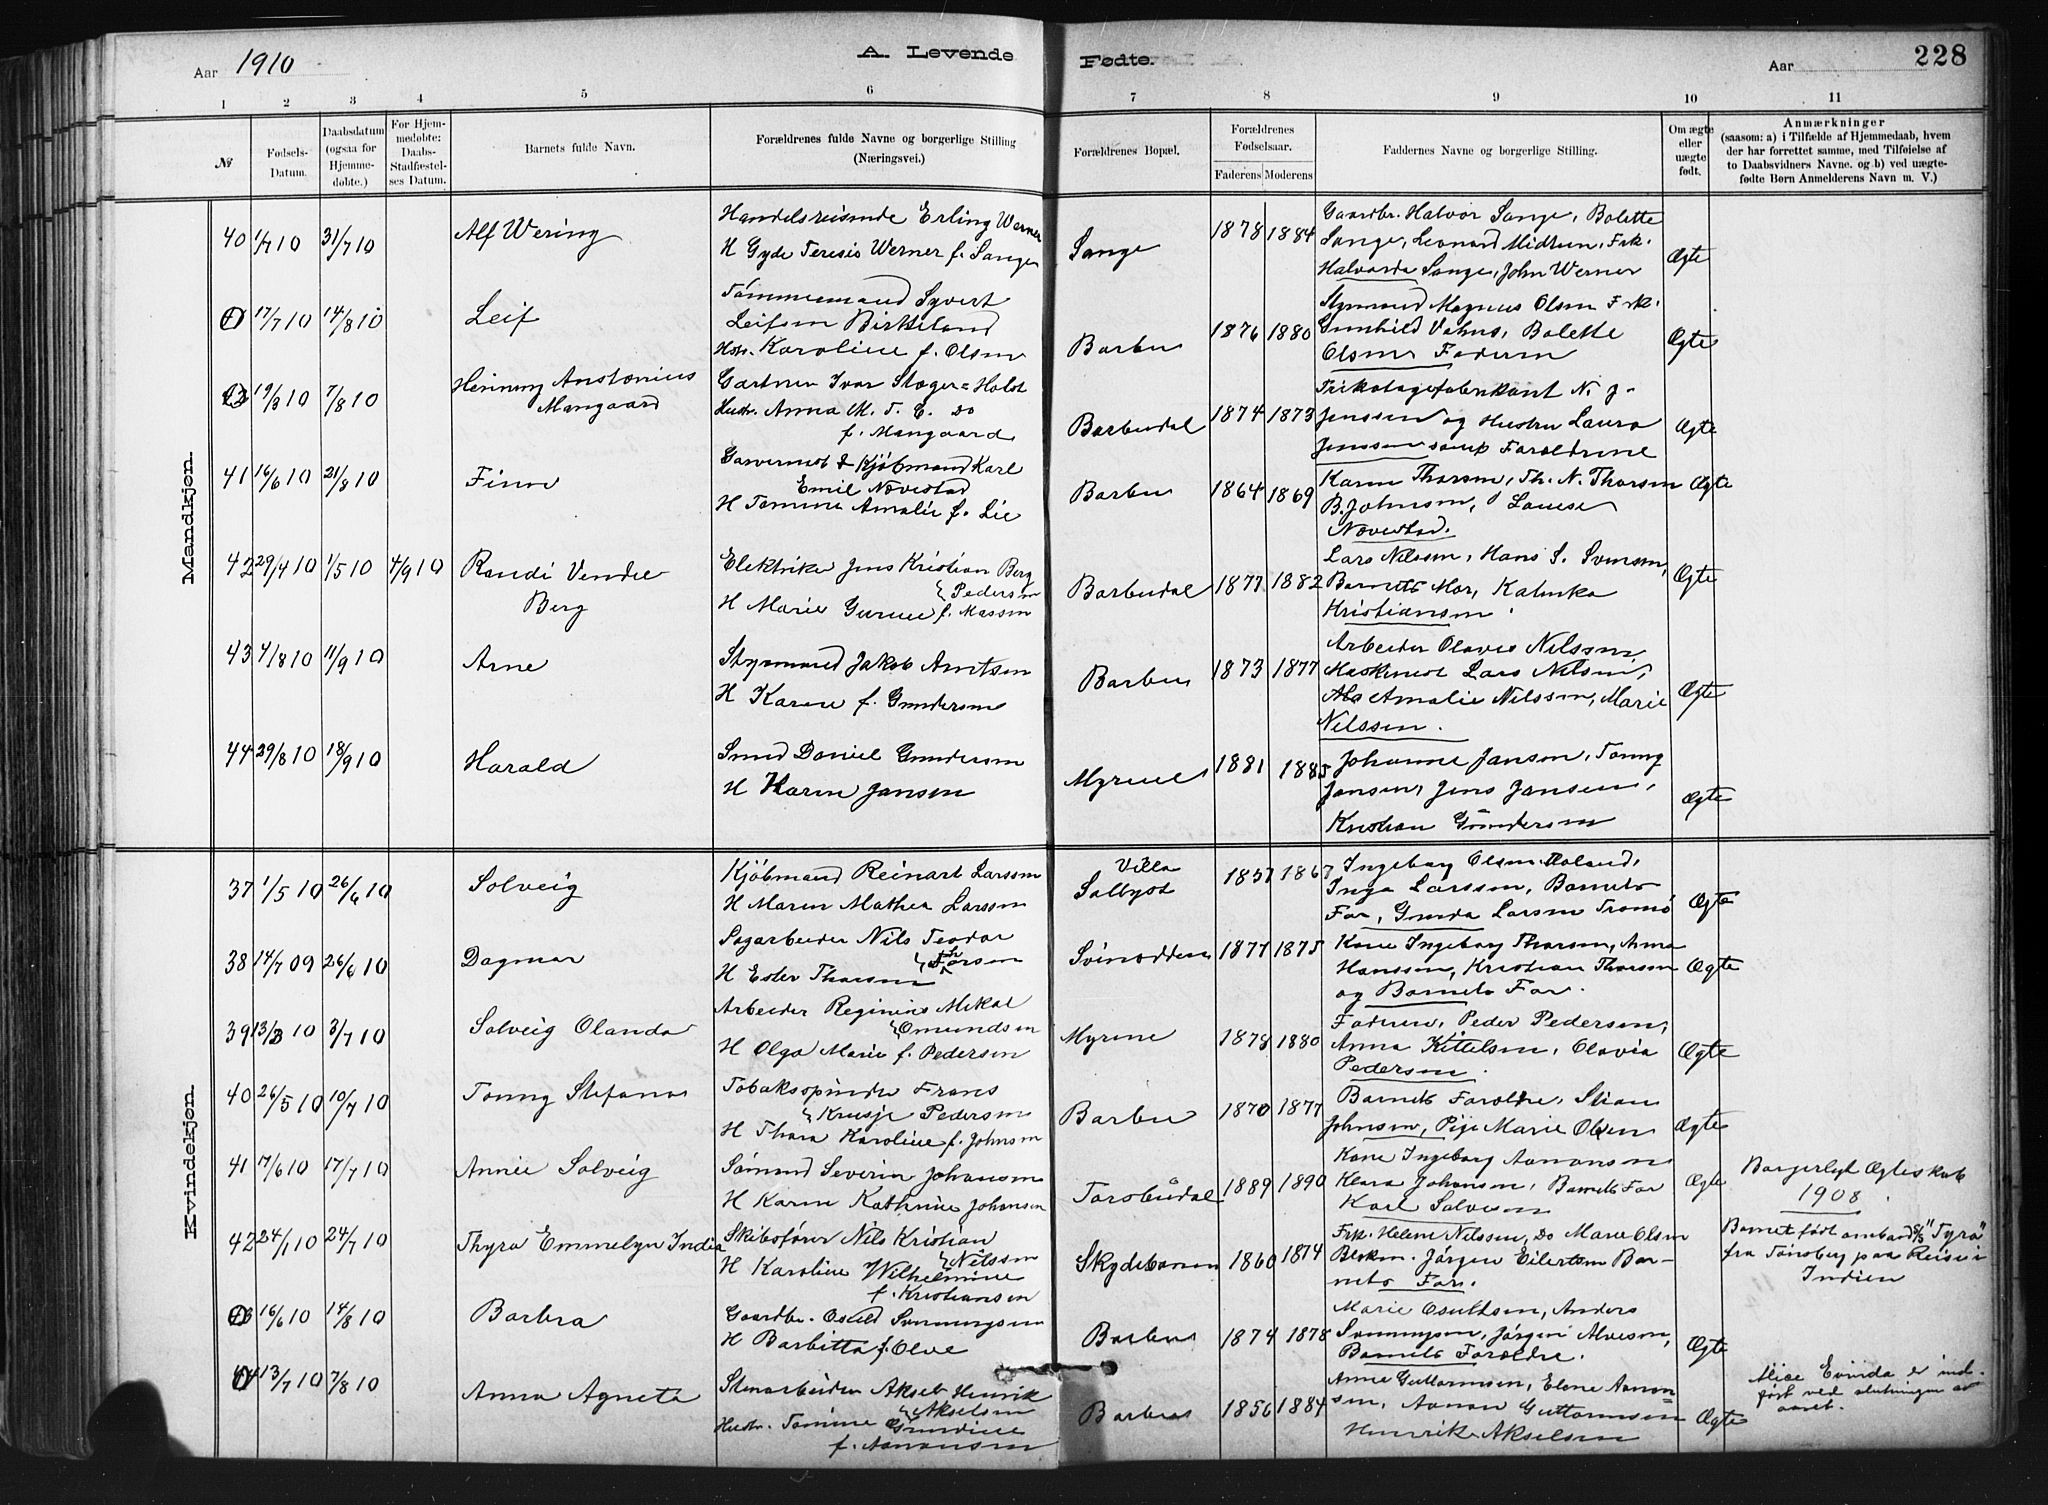 Aar 1910
A. Levende Fødte.
Aar
228
1 2 3 4 5 6 7 8 9 10 11
№
Fødsels-Datum.
Daabsdatum (ogsaa for Hjemmedøbte.)
For Hjemmedøbte: Daabs-Stadfæstelses Datum.
Barnets fulde Navn.
Forældrenes fulde Navne og borgerlige Stilling (Næringsvei.)
Forældrenes Bopæl.
Forældrenes Fødselsaar.
Faderens Moderens
Faddernes Navne og borgerlige Stilling.
Om ægte eller uægte født.
Anmærkninger
(saasom: a) i Tilfælde af Hjemmedaab, hvem der har forrettet samme, med Tilføielse af to Daabsvidners Navne. og b) ved uægtefødte Børn Anmelderens Navn m. V.)
Mandkjøn.
40 1/7 10 31/7 10 Alf Wering
Handelsreisende Erling Werner
H Gyda Teresie Werner f. Sange
Sange 1878 1884
Gaardbr. Halvor Sange, Bolette
Sange, Leonard Midtun, Frk.
Halvarda Sange, John Werner
Ægte
17/7 10 14/8 10 Leif
Tömmermand Syvert
Leifsen Birkeland
Hstr. Karoline f. Olsen
Barbu 1876 1880
Styrmand Magnus Olsen Frk.
Gunhild Vahns, Bolette
Olsen Faderen
Ægte
19/3 10 7/8 10 Henning Anstonius
Mangaard
Gartner Ivar Stæger=Holst
Hustr. Anna M. T. C. Do
f. Mangaard
Barbudal 1874 1873
Trikotagefabrikant N. J.
Jenssen og Hustru Laura
Jenssen samt Forældrene
Ægte
41 16/6 10 21/8 10 Finn
Garvermst & Kjøbmand Karl
Emil Nævestad
H Tomine Amalie f. Lie
Barbu 1864 1869
Karen Thorsen, Th. N. Thorsen
B. Johnsen, Louise
Nævestad.
Ægte
42 29/4 10 1/5 10 4/9 10 Randi Vendie
Berg
Elektriker Jens Kristian Berg
Pedersen
H Marie Gurine f. Massen
Barbudal 1877 1882
Lars Nilssen, Hans S. Svensen,
Barnets Mor, Kalinka
Kristiansen
Ægte
43 4/8 10 11/9 10 Arne
Styrmand Jakob Arntsen
H Karen f. Gundersen
Barbu 1873 1877
Arbeider Olavus Nilssen,
Maskinist Lars Nilsen,
Amalie Nilssen, Marie
Nilssen.
Ægte
44 29/8 10 18/9 10 Harald
Smed Daniel Gundersen
H Karen Jansen
Myrene 1881 1885
Johanne Jansen, Tonny
Jansen, Jens Jansen,
Kristian Gundersen
Ægte
Kvindekjøn.
37 1/5 10 26/6 10 Solveig
Kjøbmand Reinart Larssen
H Maren Mathea Larssen
Villa
Solbyst 1857 1867
Ingeborg Olsen Roland,
Inga Larssen, Barnets
Far, Gunda Larsen Tromö
Ægte
38 14/7 09 26/6 10 Dagmar
Sagarbeider Nils Teodor
Thorsen
H Ester Thorsen
Svinodden 1877 1875
Kone Ingeborg Thorsen, Anna
Hanssen, Kristian Thorsen
og Barnets Far.
Ægte
39 13/3 10 3/7 10 Solveig Olanda
Arbeider Reginius Mikal
Omundsen
H Olga Marie f. Pedersen
Myrene 1878 1880
Faderen, Peder Pedersen,
Anna Kittelsen, Olavia
Pedersen.
Ægte
40 26/5 10 10/7 10 Tonny Stefana
Tobaksspinder Frans
Krusje Pedersen
H Thora Karoline f. Johnsen
Barbu 1870 1877
Barnets Forældre, Stian
Johnsen, Pige Marie Olsen
Ægte
41 17/6 10 17/7 10 Annie Solveig
Sömand Severin Johansen
H Karen Kathrine Johansen
Torsbudal 1889 1890
Kone Ingeborg Aanonsen
Klara Johansen, Barnets Far
Karl Salvesen
Ægte
Borgerligt Ægteskab
1908.
42 24/1 10 24/7 10 Thyra Emmelyn India
Skibsfører Nils Kristian
Nilssen
H Karoline Wilhelmine
f. Kristiansen
Skydebanen 1860 1874
Frk. Helene Nilssen, Do Marie Olsen
Blokm. Jørgen Eilertsen Bar-
nets Far.
Barnet født ombord S/S "Tyra"
fra Tönsberg paa Reise i
Indien
16/6 10 14/8 10 Barbra
Gaardbr. Osuld Sunnungsen
H Barbitta f. Olve
Barbu 1874 1878
Marie Osuldsen, Anders
Sunnungsen, Jørgen Alvesen,
Barnets Forældre.
Ægte
13/7 10 7/8 10 Anna Agneta
Stenarbeider Aksel Henrik
Akselsen
Hustr. Tomine Gundine
f. Aanonsen
Barbu 1856 1884
Anne Guttormsen, Elene Aanon=
sen, Aanon Guttormsen
Henrik Akselsen
Ægte
Alice Evinda er ind-
ført ved slutningen av
aaret.